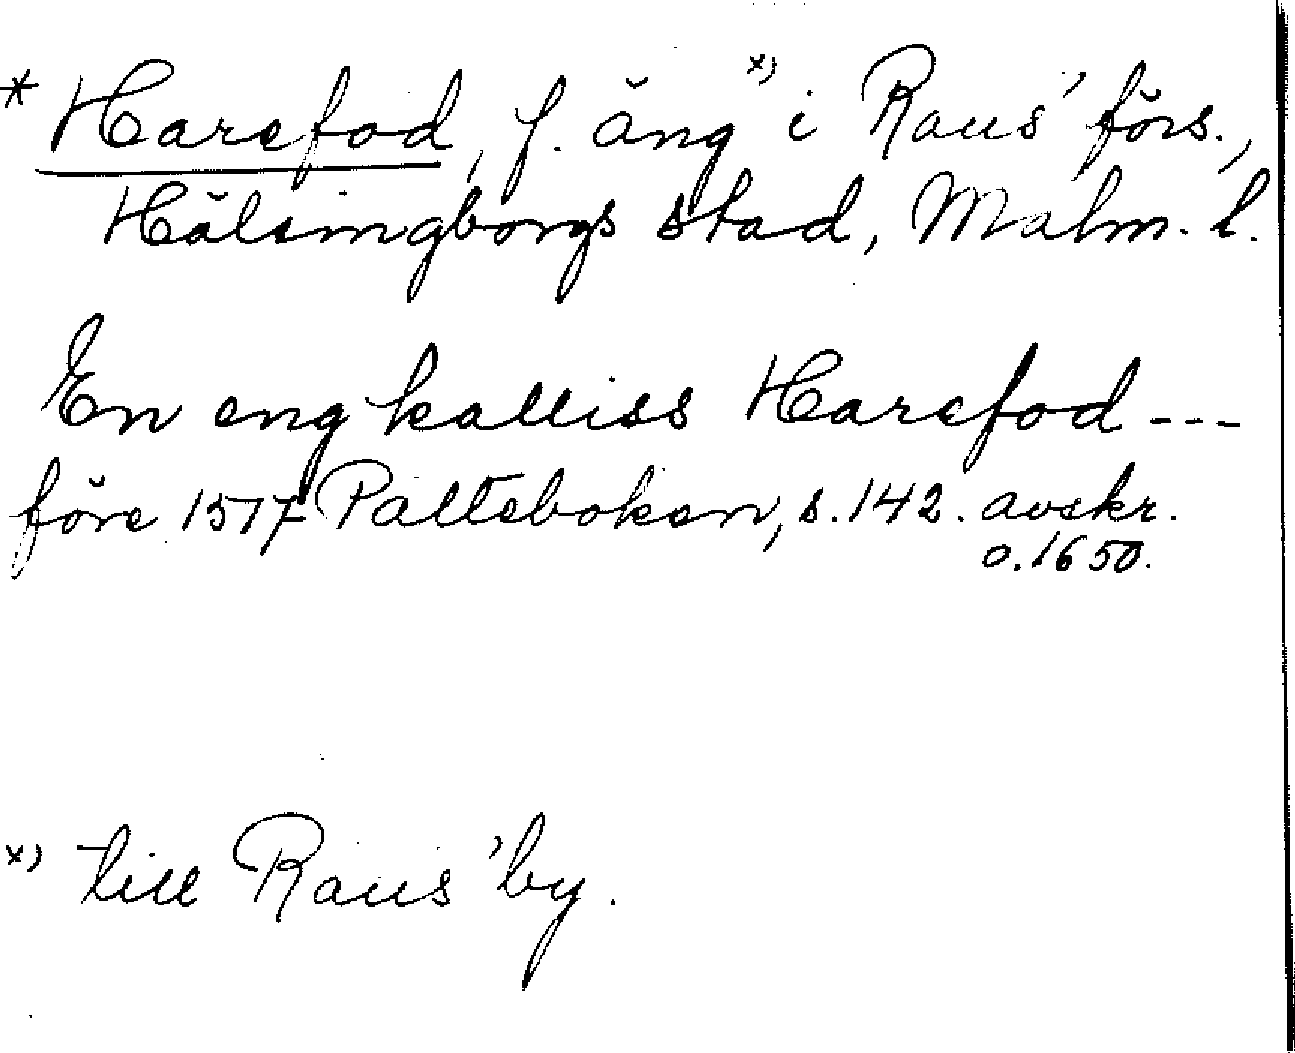 * Harefod, f. äng x) i Raus' förs.,
Hälsingborgs stad, Malm. l.
En eng kalliss Harefod ---
före 1517 Palteboken, s. 142. avskr.
o. 1650.
x) till Raus' by.